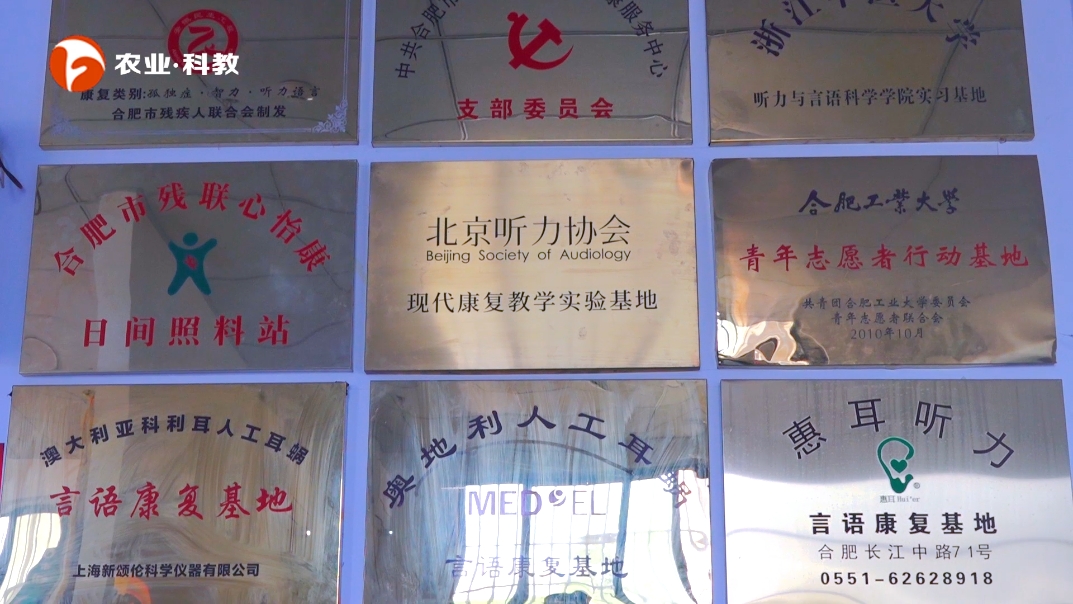 农业·科教
康复类别:孤独症·智力·听力语言
合肥市残疾人联合会制发
中共合肥市
康服务中心
支部委员会
浙江中医大学
听力与言语科学学院实习基地
合肥市残联心怡康
日间照料站
北京听力协会
Beijing Society of Audiology
现代康复教学实验基地
合肥工业大学
青年志愿者行动基地
共青团合肥工业大学委员会
青年志愿者联合会
2010年10月
澳大利亚科利耳人工耳蜗
言语康复基地
上海新颂伦科学仪器有限公司
奥地利人工耳蜗
MED EL
言语康复基地
惠耳听力
惠耳 Hui'er
言语康复基地
合肥长江中路71号
0551-62628918